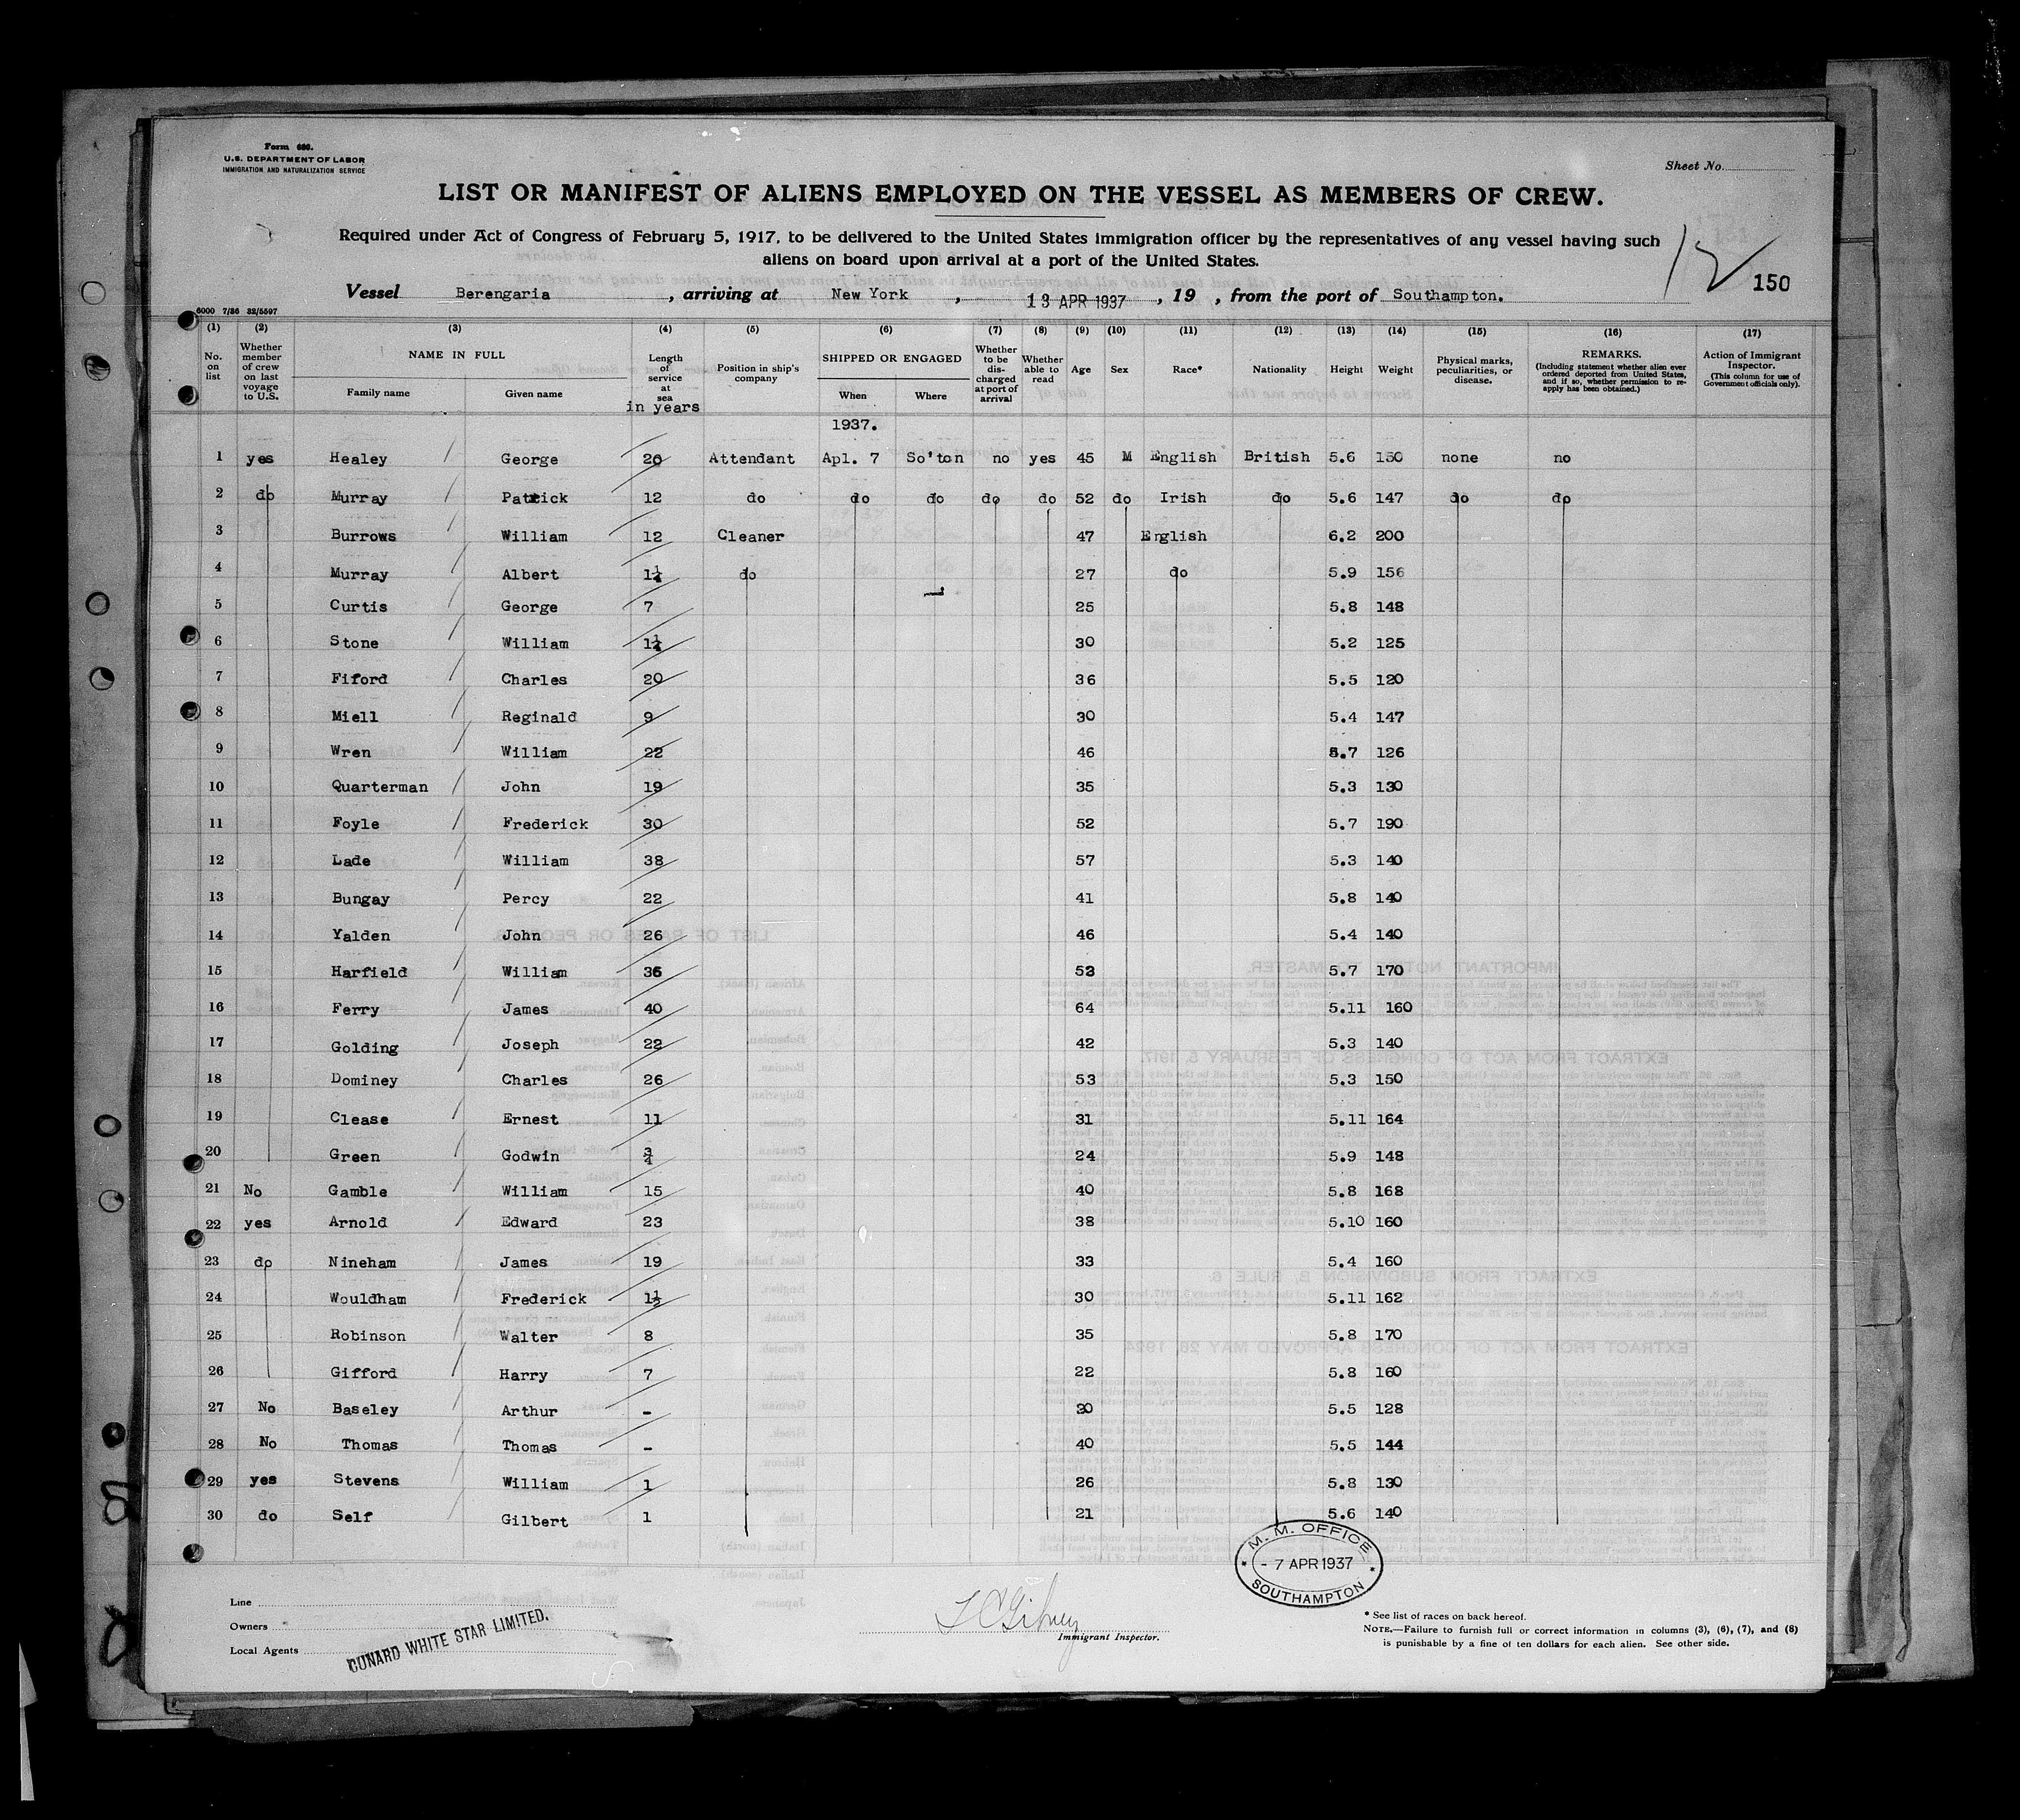 Form 686.
U.S. DEPARTMENT OF LABOR
IMMIGRATION AND NATURALIZATION SERVICE
Sheet No.
LIST OR MANIFEST OF ALIENS EMPLOYED ON THE VESSEL AS MEMBERS OF CREW.
Required under Act of Congress of February 5, 1917, to be delivered to the United States immigration officer by the representatives of any vessel having such
aliens on board upon arrival at a port of the United States.
12 150
Vessel Berengaria, arriving at New York, 13 APR 1937, 19 , from the port of Southampton.
6000 7/36 32/5597
(1) (2) (3) (4) (5) (6) (7) (8) (9) (10) (11) (12) (13) (14) (15) (16) (17)
No. on list
Whether member of crew on last voyage to U.S.
NAME IN FULL
Family name
Given name
Length of service at sea
in years
Position in ship's company
SHIPPED OR ENGAGED
When
Where
Whether to be discharged at port of arrival
Whether able to read
Age
Sex
Race*
Nationality
Height
Weight
Physical marks, peculiarities, or disease.
REMARKS.
(Including statement whether alien ever ordered deported from United States, and if so, whether permission to re-apply has been obtained.)
Action of Immigrant Inspector.
(This column for use of Government officials only).
1937.
1 yes Healey George 20 Attendant Apl. 7 So'ton no yes 45 M English British 5.6 150 none no
2 do Murray Patrick 12 do do do do do 52 do Irish do 5.6 147 do do
3 Burrows William 12 Cleaner 47 English 6.2 200
4 Murray Albert 1¼ do 27 do 5.9 156
5 Curtis George 7 25 5.8 148
6 Stone William 1¼ 30 5.2 125
7 Fiford Charles 20 36 5.5 120
8 Miell Reginald 9 30 5.4 147
9 Wren William 22 46 5.7 126
10 Quarterman John 19 35 5.3 130
11 Foyle Frederick 30 52 5.7 190
12 Lade William 38 57 5.3 140
13 Bungay Percy 22 41 5.8 140
14 Yalden John 26 46 5.4 140
15 Harfield William 36 52 5.7 170
16 Ferry James 40 64 5.11 160
17 Golding Joseph 22 42 5.3 140
18 Dominey Charles 26 53 5.3 150
19 Clease Ernest 11 31 5.11 164
20 Green Godwin ¾ 24 5.9 148
21 No Gamble William 15 40 5.8 168
22 yes Arnold Edward 23 38 5.10 160
23 do Nineham James 19 33 5.4 160
24 Wouldham Frederick 1½ 30 5.11 162
25 Robinson Walter 8 35 5.8 170
26 Gifford Harry 7 22 5.8 160
27 No Baseley Arthur - 30 5.5 128
28 No Thomas Thomas - 40 5.5 144
29 yes Stevens William 1 26 5.8 130
30 do Self Gilbert 1 21 5.6 140
M. M. OFFICE
- 7 APR 1937
SOUTHAMPTON
Line
Owners
Local Agents
CUNARD WHITE STAR LIMITED.
Immigrant Inspector.
* See list of races on back hereof.
NOTE.—Failure to furnish full or correct information in columns (3), (6), (7), and (8)
is punishable by a fine of ten dollars for each alien. See other side.